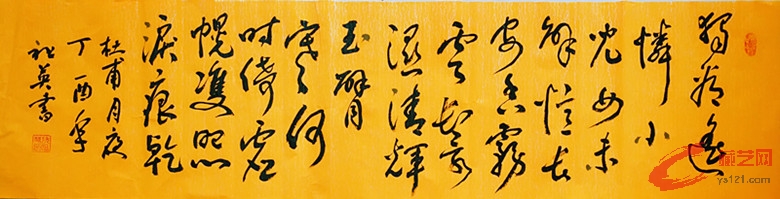 獨看遙
憐小
兒女未
解憶長
安香霧
雲鬟
濕清輝
玉臂
寒何
時倚虛
幌雙照
淚痕乾
杜甫月夜
丁酉年
英書
藏艺网
ys121.com